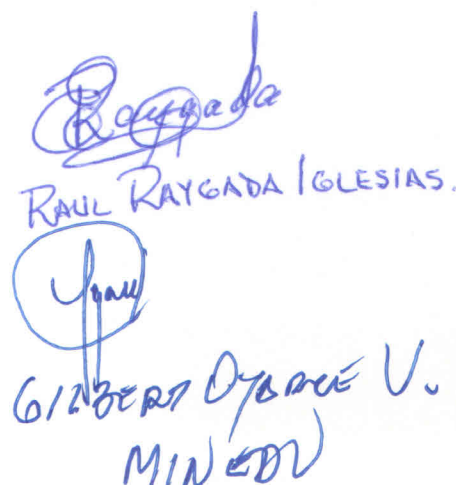 Raygada
RAUL RAYGADA IGLESIAS.
GILBERT OYARCE V.
MINEDU